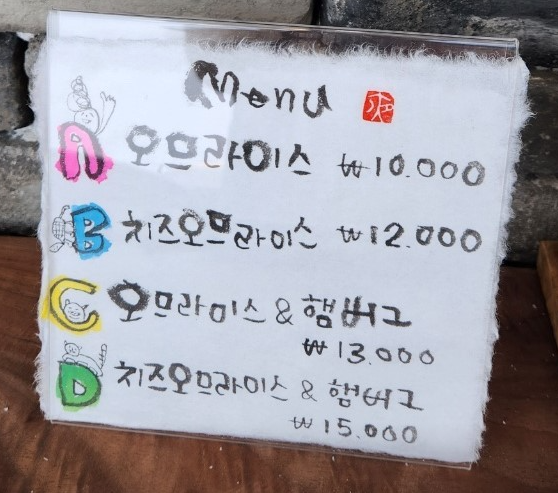 Menu
A 오므라이스 ₩10.000
B 치즈오므라이스 ₩12.000
C 오므라이스 & 햄버그
₩13.000
D 치즈오므라이스 & 햄버그
₩15.000